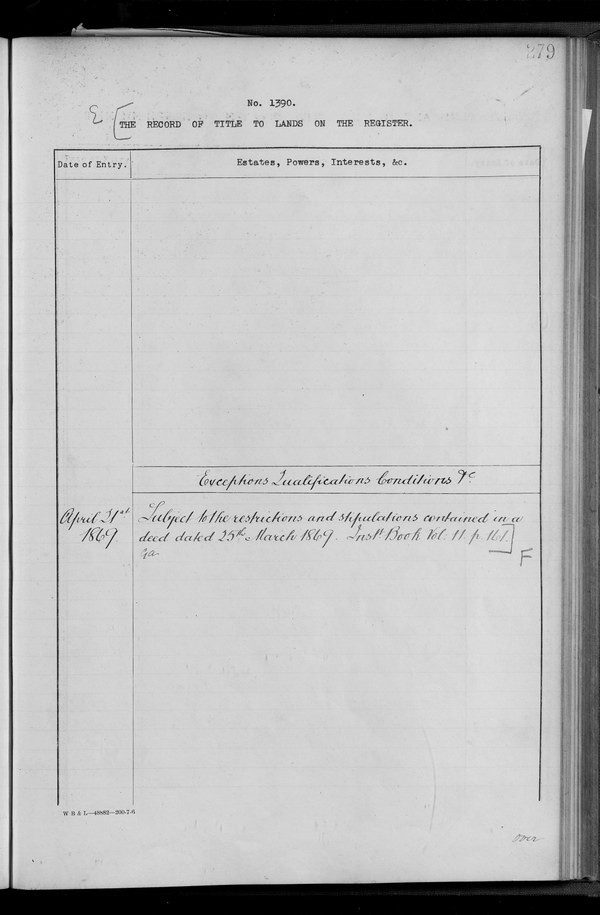 279
No. 1390.
E
THE RECORD OF TITLE TO LANDS ON THE REGISTER.
Date of Entry. Estates, Powers, Interests, &c.
Exceptions Qualifications Conditions &c
April 21st Subject to the restrictions and stipulations contained in a
1869. deed dated 25th March 1869. Inst Book Vol. 11 p. 161.
F
W B & L—48882—200-7-
over